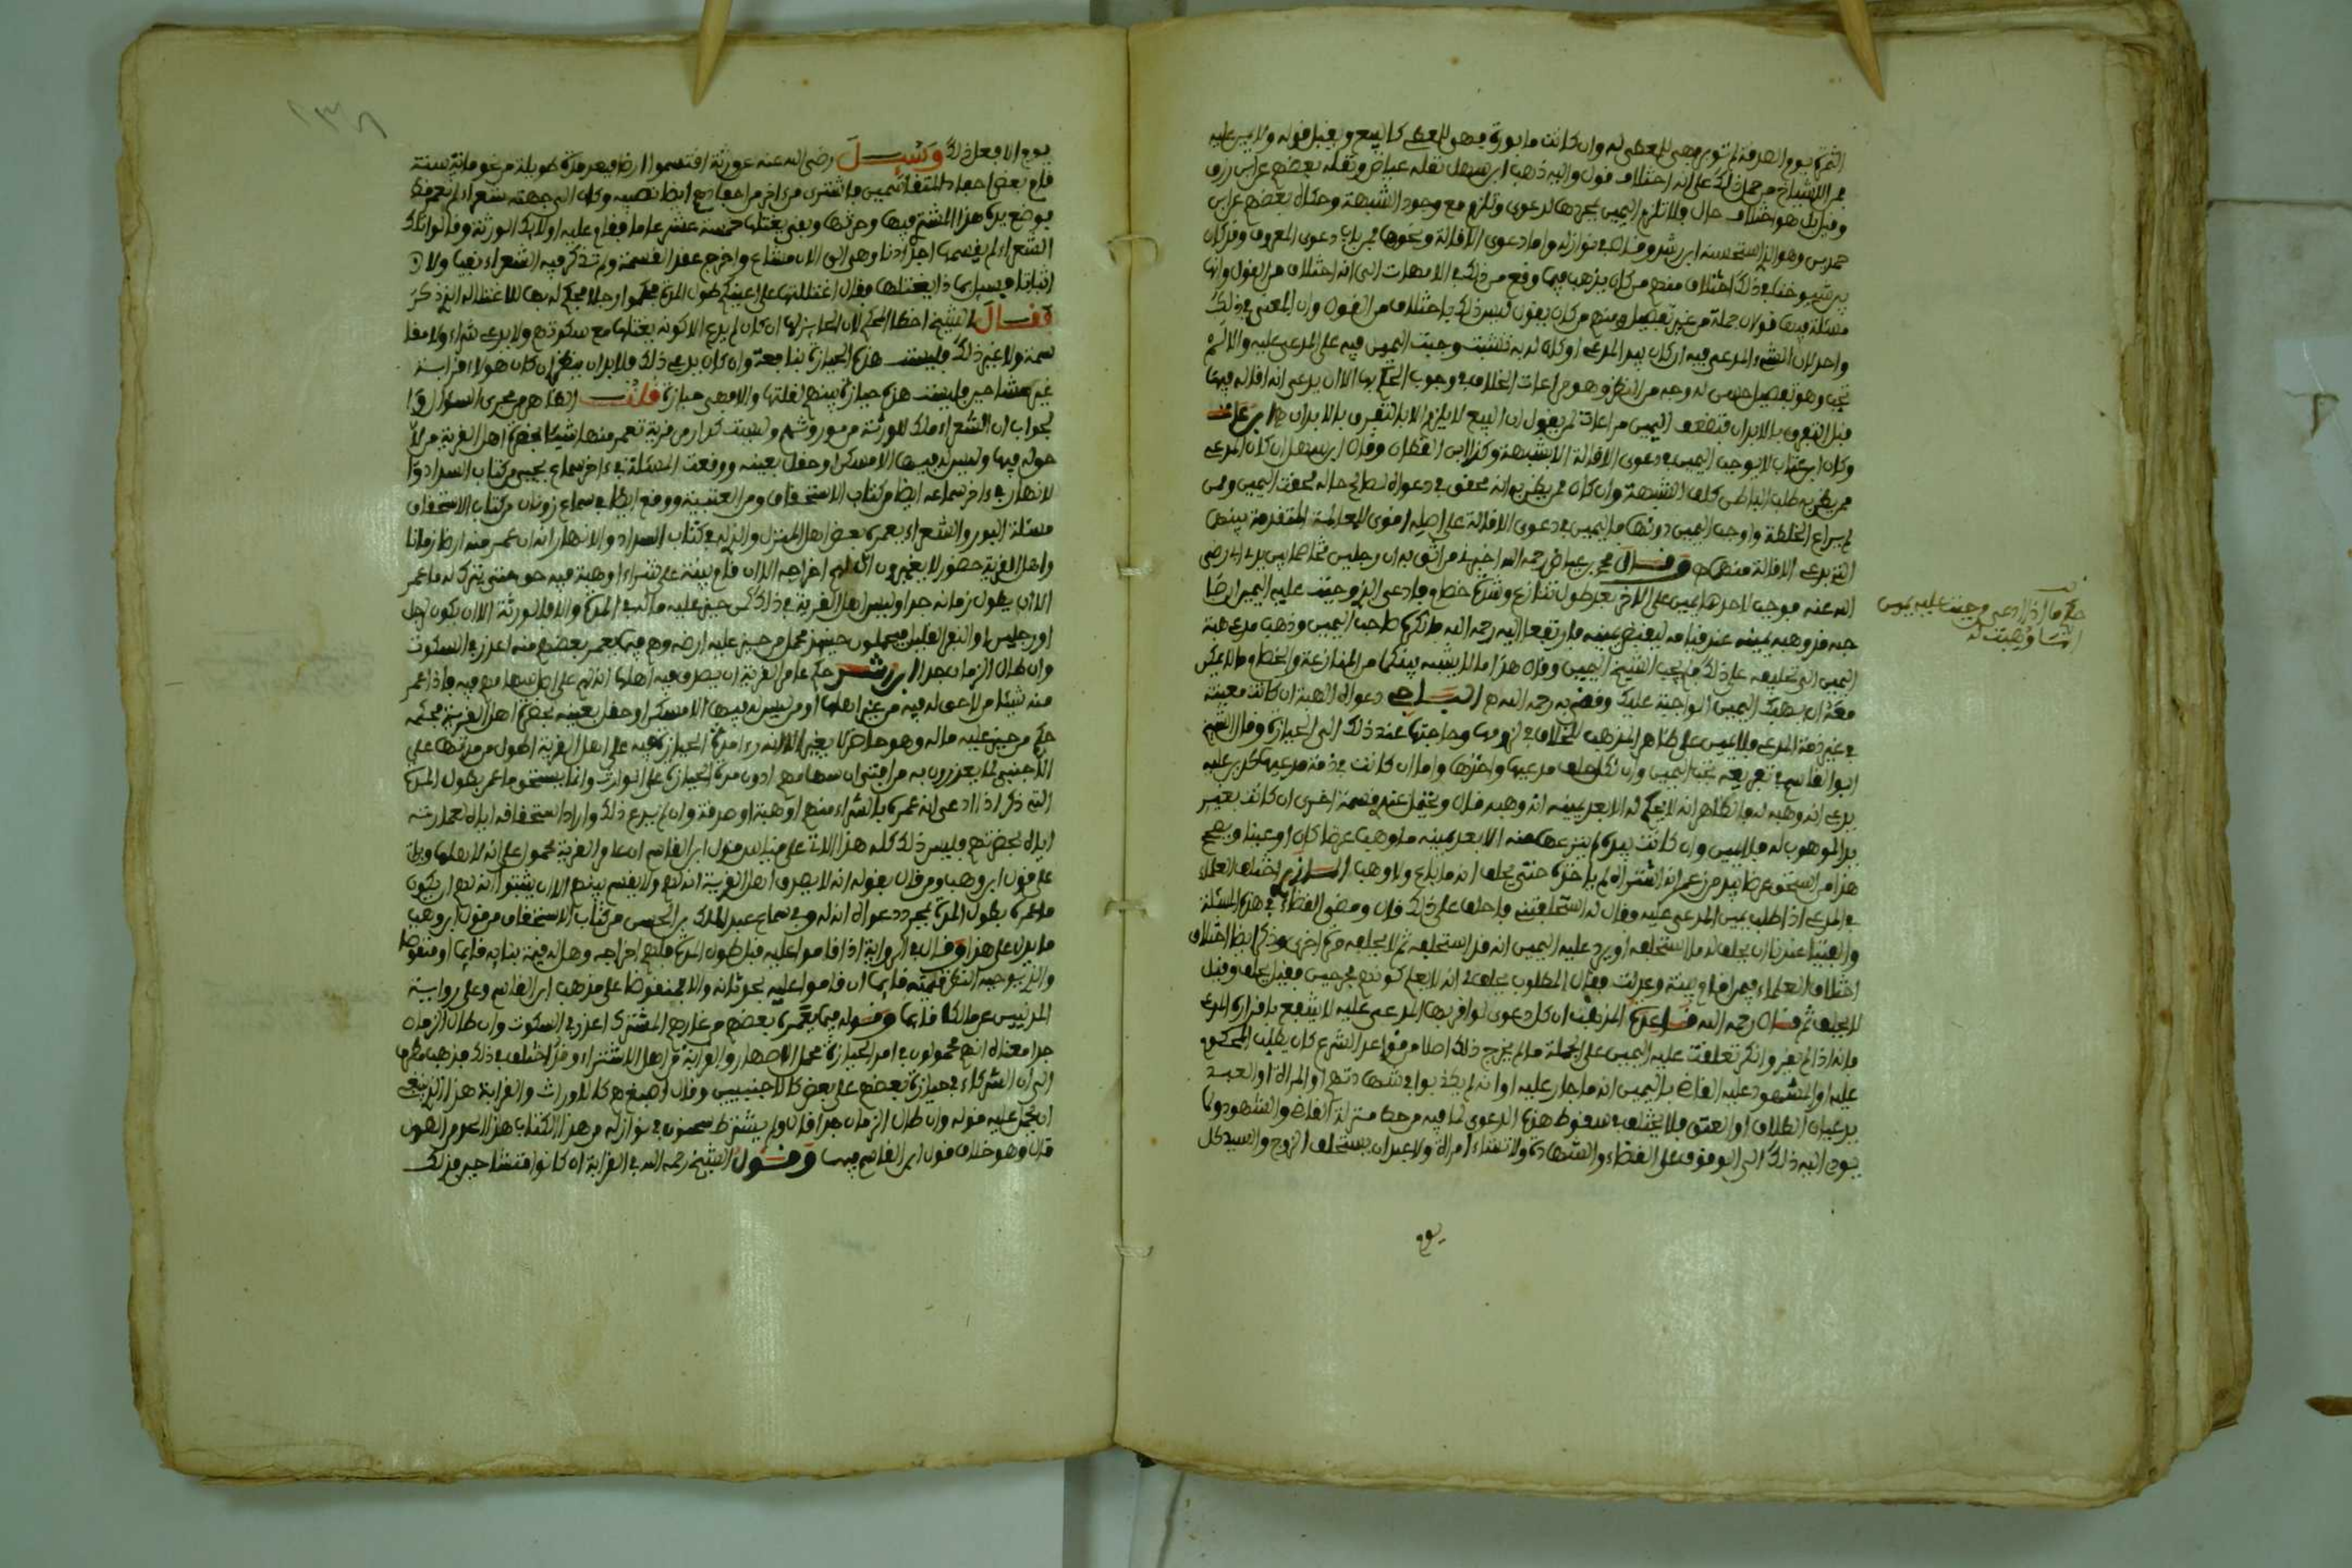 الثمرة يوم الصدقة لم توبر فهي للمعطى له وان كانت مابورة فهي للمعطي كالبيع ويقبل قوله ولا يمين عليه
من الاشياخ من حمل ذلك على انه اختلاف قول واليه ذهب ابن سهل نقله عياض ونقله بعضهم عن ابن رزق
وقيل بل هو اختلاف حال فلا تلزم اليمين بمجردها لدعوى وتلزم مع وجود الشبهة وحكاه بعضهم عن ابن
حمدين وهو الذي استحسنه ابن رشد وقال في نوازله واما دعوى الاقالة ونحوها من باب دعوى المعروف وقد كان
من شيوخنا في ذلك اختلاف منهم من كان يذهب فيما وقع من ذلك في الامهات الى انه اختلاف من القول وانها
مسئلة فيها قولان جملة من غير تفصيل ومنهم من كان يقول ليس ذلك باختلاف من القول وان المعنى في ذلك
واحد لان الشيء المدعى فيه ان كان بيد المدعي او كان له به تشبث وجبت اليمين فيه على المدعى عليه والا لم
تجب وهو تفصيل حسن له وجه من النظر وهو مراعاة الخلاف في وجوب الحكم بها الا ان يدعي انه اقاله فيها
قبل التفرق بالابدان فتضعف اليمين مراعاة لمن يقول ان البيع لا يلزم الا بالتفرق بالابدان ه ابن عات
وكان ابن عتاب لا يوجب اليمين في دعوى الاقالة الا بشبهة وكذا ابن القطان وقال ابن سهل ان كان المدعي
ممن يظن به طلب الباطل كلف الشبهة وان كان ممن يظن به انه محق في دعواه لصالح حاله لحقت اليمين ومن
لم يراع الخلطة واوجب اليمين دونها فاليمين في دعوى الاقالة على اصله اقوى للمعاملة المتقدمة بينهما
التي يدعي الاقالة منها ه وقال محمد بن عياض رحمه الله اخبرني من اثق به ان رجلين تخاصما بين يدي ابي رضي
الله عنه فوجب لاحدهما يمين على الاخر بعد طول تنازع وشدة خصام فادعى الذي وجبت عليه اليمين ان صا
حبه قد وهبه يمينه عند قيامه ليقبض يمينه فارتفعا اليه رحمه الله فانكرها صاحب اليمين وذهب مدعي هبة
اليمين الى تحليفه على ذلك فاوجب الشيخ اليمين وقال هذا مما لا يشبه بينكما من المنازعة والخصام ما لا يمكن
معه ان يهبك اليمين الواجبة عليك وقضى به رحمه الله ه الباجي دعواه الهبة ان كانت معينة
في غير ذمة المدعي فلا يمين على ظاهر المذهب للخلاف في لزومها وحاجتها عند ذلك الى الحيازة وقال الشيخ
ابو القاسم في تفريعه تجب اليمين وان نكل حلف مدعيها واخذها واما ان كانت في ذمة مدعيها كمن عليه
يدعي انه وهبه له فالظاهر انه لا يحكم له الا بعد يمينه انه وهبه قال ويحتمل عندي قسمة اخرى ان كانت بغير
يد الموهوب له فلا يمين وان كانت بيده لم ينزعها منه الا بعد يمينه ما وهب عرضا كان او عينا ويصحح
هذا من استحق عرضا بيد من زعم انه اشتراه لم ياخذه حتى يحلف انه ما باع ولا وهب المازري اختلف العلماء
في المدعي اذا طلب يمين المدعى عليه وقال له استحلفتني فاحلف على ذلك قال ومضى القضاء في هذه المسئلة
والفتيا عندنا ان يحلف له ما استحلفه او يرد عليه اليمين انه قد استحلفه ثم لا يحلفه مرة اخرى وذكر ايضا اختلاف
اختلاف العلماء فيمن اقام بينة وعدلت فقال المطلوب يحلف لي انه لا يعلم كونهم مجرحين فقيل يحلف وقيل
لا يحلف ثم قال رحمه الله قاعدة المذهب ان كل دعوى لو اقر بها المدعى عليه لانتفع باقراره المدعي
فانه اذا لم يقر وانكر تعلقت عليه اليمين على الجملة ما لم يخرج ذلك اصلا من قواعد الشرع كان يطلب المحكوم
عليه او المشهود عليه القاضي باليمين انه ما جار عليه او انهم لم يكذبوا في شهادتهم او المراة او العبد
يدعيان الطلاق او العتق فلا يختلف في سقوط هذه الدعوى لما فيه من حط منزلة القاضي والشهود ولما
يودي اليه ذلك الى الوقوف على القضاء والشهادة ولا تشاء امراة ولا عبد ان يستحلف الزوج والسيد كل
يوم
حكم ما اذا ادعى من وجبت عليه يمين
انها وهبت له
١٣٦
يوم الا فعل ذلك وسئل رضي الله عنه عن ورثة اقتسموا ارضا فبعد مدة طويلة من نحو ماية سنة
قام بعض احفاد المتقاسمين فاشترى من اخر من احفادهم ايضا نصيبه وكان الى جهته شعراء لم يعمرها
فوضع يده هذا المشتري فيها وحرثها وبقي يغتلها خمسة عشر عاما فقام عليه اولائك الورثة وقالوا تلك
الشعراء لم يقسمها اجدادنا وهي الى الان مشاع واخرج عقد القسمة ولم تذكر فيه الشعراء نفيا ولا
اثباتا فسئل بماذا يغتلها فقال اغتللتها على اعينكم طول المدة فحكموا رجلا فحكم له بها للاغتلال الذي ذكر
فقال الشيخ اخطا الحكم لان الحايز لها ان كان لم يدع الا كونه يغتلها مع سكوتهم ولا يدعي شراء ولا مقا
سمة ولا غير ذلك فليست هذه الحيازة بنافعة وان كان يدعي ذلك فلا بد ان ينظر ان كان هولاء قرابة
غير متشاحين فليست هذه حيازة بينهم لغلتها والا فهي حيازة قلت الظاهر من مجرى السوال وا
لجواب ان الشعراء ملك للورثة من موروثهم وليست كدار من قرية تعمر منها شيئا بعض اهل القرية من لا
حق له فيها وليس له فيها الا مسكن او حقل بعينه ووقعت المسئلة في اخر سماع يحيى من كتاب السداد وا
لانهار وفي اخر سماعه ايضا من كتاب الاستحقاق ومن العتبية ووقع ايضا في سماع زونان من كتاب الاستحقاق
مسئلة البور والشعراء يعمره بعض اهل المنزل والذي له في كتاب السداد والانهار انه ان عمر منه ارضا زمانا
واهل القرية حضور لا يغيرون ان لهم اخراجه الا ان تقوم بينة على شراء او هبة فيه حق حتى يترك له ما عمر
الا ان يطول زمانه جدا وليس اهل القرية في ذلك كمن حيز عليه ماله في المدة ولا كالورثة الا ان يكون لرجل
او رجلين او النفر القليل فيحملون حينئذ محمل من حيز عليه ارضه وهم فيها يعمر بعضهم منه اعذر في السكوت
وان طال الزمان جدا ابن رشد حكم عامر القرية ان يصرف فيه اهلها انه لهم على اصل سهامهم فيه فاذا عمر
منه شيئا من لا حق له فيه من غير اهلها او من ليس له فيها الا مسكن او حقل بعينه بعض اهل القرية فحكمه
حكم من حيز عليه ماله وهو حاضر لا يغير الا انه راى امد الحيازة فيه على اهل القرية اطول من مدتها على
الاجنبي لما يعذرون به من افتراق سهامهم ادون مدة الحيازة على الوارث وانما يستحق ما عمر بطول المدة
التي ذكر اذا ادعى انه عمره بالشراء منهم او هبة او صدقة وان لم يدع ذلك واراد استحقاقه اياه بعمارته
اياه بحضرتهم فليس ذلك كله هذا الاتي على قياس قول ابن القاسم ان عامر القرية محمول على انه لاهلها وياتي
على قول ابن وهب ومن قال بقوله انه لا يصرف اهل القرية انه لهم ولا يقسم بينهم الا ان يثبتوا انه لهم ان يكون
ما عمره بطول المدة بمجرد دعواه انه له وفي سماع عبد الملك بن الحسن من كتاب الاستحقاق من قول ابن وهب
ما يدل على هذا وقال في الرواية اذا قاموا عليه قبل طول المدة فلهم اخراجه وهل له قيمة بنائه قايما او منقوضا
والذي يوجبه النظر قيمته قايما ان قاموا عليه بحدثانه والا منقوضا على مذهب ابن القاسم وعلى رواية
المدنيين عن مالك قايما وقوله فيما يعمره بعضهم من غامرهم المشترك اعذر في السكوت وان طال الزمان
جدا معناه انهم محمولون في امر الحيازة محمل الاصهار والقرابة من اهل الاشتراء وقد اختلف في ذلك فذهب مطرف
الى ان الشركاء في حيازة بعضهم على بعض كالاجنبيين وقال اصبغ هم كالاوراث والقرابة هذا الذي ينبغي
ان يحمل عليه قوله وان طال الزمان جدا قال ولم يشترط سحنون في نوازله من هذا الكتاب هذا الحد من الطول
قال وهو خلاف قول ابن القاسم فيها وقول الشيخ رحمه الله في القرابة ان كانوا متشاحين فذلك